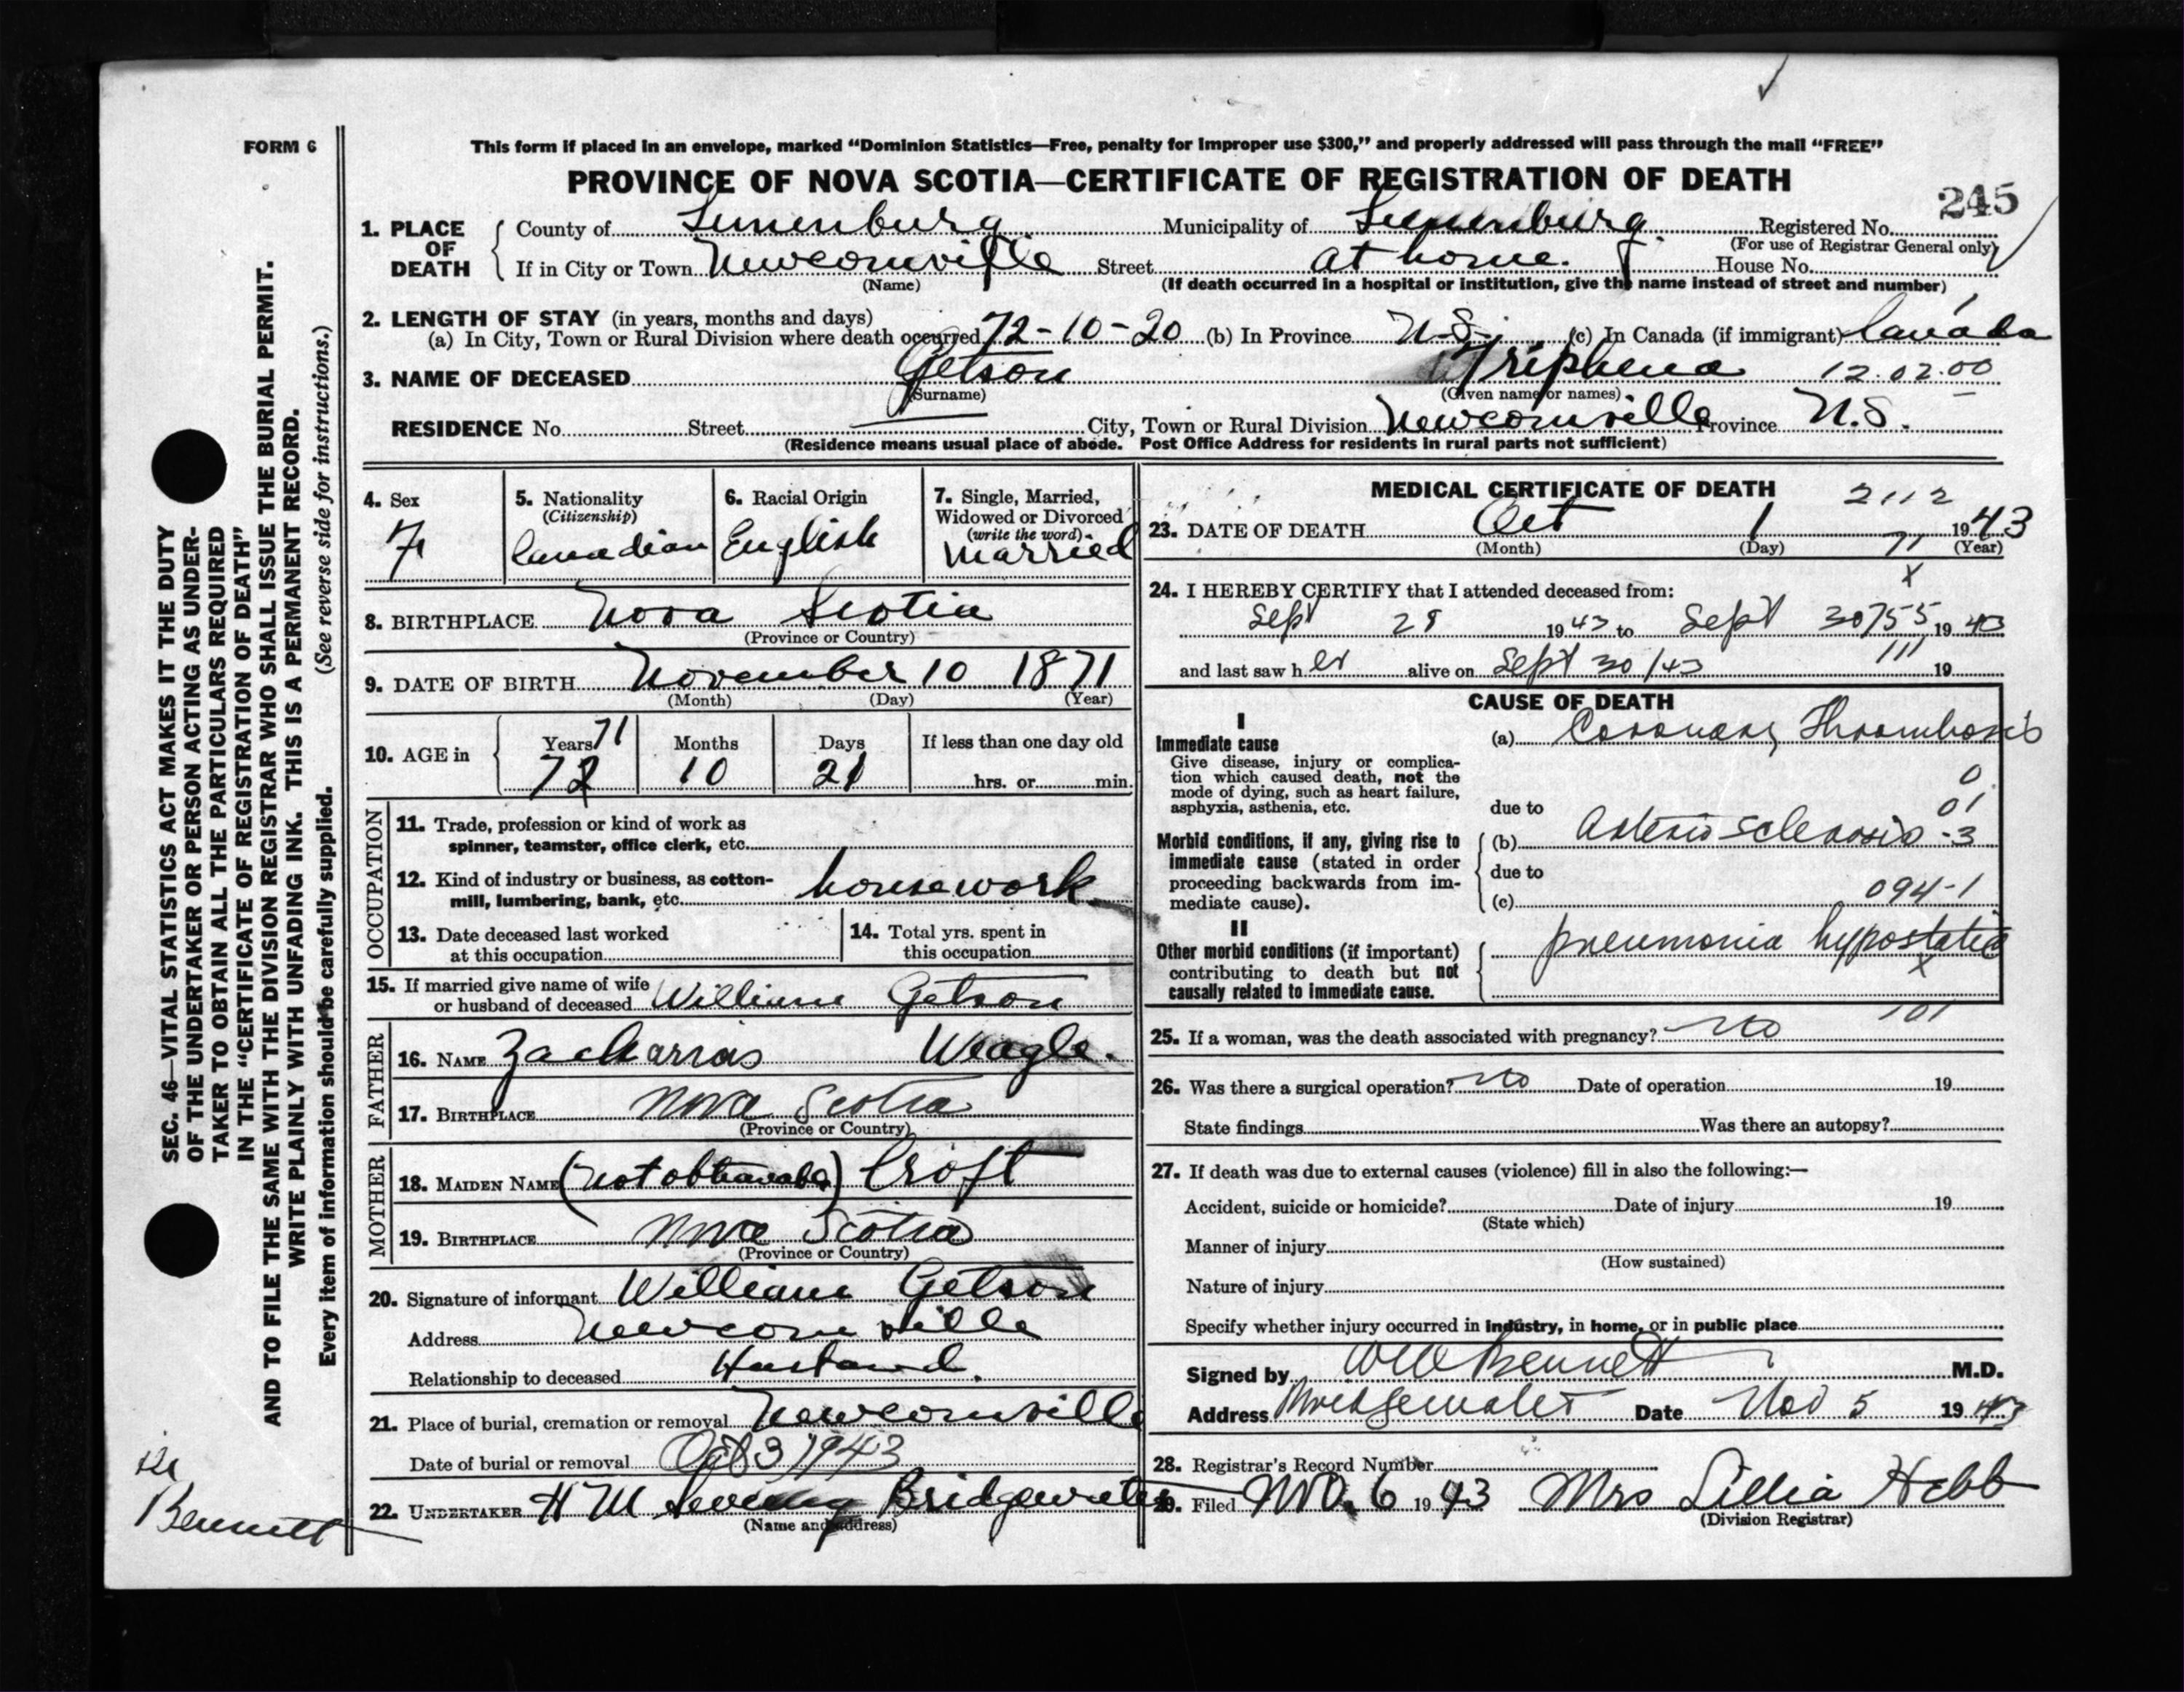 FORM 6
This form if placed in an envelope, marked “Dominion Statistics—Free, penalty for improper use $300,” and properly addressed will pass through the mail “FREE”
PROVINCE OF NOVA SCOTIA—CERTIFICATE OF REGISTRATION OF DEATH
245
1. PLACE OF DEATH County of Lunenburg Municipality of Lunenburg Registered No.
(For use of Registrar General only)
If in City or Town Newcomville Street at home. House No.
(Name) (If death occurred in a hospital or institution, give the name instead of street and number)
2. LENGTH OF STAY (in years, months and days)
(a) In City, Town or Rural Division where death occurred 72-10-20 (b) In Province N.S. (c) In Canada (if immigrant) Canada
3. NAME OF DECEASED Getson Triphena 12.02.00
(Surname) (Given name or names)
RESIDENCE No. Street City, Town or Rural Division Newcomville Province N.S.
(Residence means usual place of abode. Post Office Address for residents in rural parts not sufficient)
4. Sex F
5. Nationality (Citizenship) Canadian
6. Racial Origin English
7. Single, Married, Widowed or Divorced (write the word) Married
8. BIRTHPLACE Nova Scotia
(Province or Country)
9. DATE OF BIRTH November 10 1871
(Month) (Day) (Year)
10. AGE in Years 71 72 Months 10 Days 21 If less than one day old
hrs. or min.
OCCUPATION
11. Trade, profession or kind of work as
spinner, teamster, office clerk, etc.
12. Kind of industry or business, as cotton-
mill, lumbering, bank, etc. housework
13. Date deceased last worked
at this occupation
14. Total yrs. spent in
this occupation
15. If married give name of wife
or husband of deceased William Getson
FATHER
16. NAME Zacharias Weagle.
17. BIRTHPLACE Nova Scotia
(Province or Country)
MOTHER
18. MAIDEN NAME (not obtainable) Croft
19. BIRTHPLACE Nova Scotia
(Province or Country)
20. Signature of informant William Getson
Address Newcomville
Relationship to deceased Husband.
21. Place of burial, cremation or removal Newcomville
Date of burial or removal Oct 3 1943
22. UNDERTAKER H M Bridgewater
(Name and address)
MEDICAL CERTIFICATE OF DEATH 2112
23. DATE OF DEATH Oct 1 1943
(Month) (Day) 71 (Year)
x
24. I HEREBY CERTIFY that I attended deceased from:
Sept 28 1943 to Sept 30 755 1943
and last saw her alive on Sept 30/43 111 19
CAUSE OF DEATH
I
Immediate cause
Give disease, injury or complica-
tion which caused death, not the
mode of dying, such as heart failure,
asphyxia, asthenia, etc.
(a) Coronary Thrombosis
0
01
due to
Morbid conditions, if any, giving rise to
immediate cause (stated in order
proceeding backwards from im-
mediate cause).
(b) Arterio sclerosis -3
due to
(c) 094-1
II
Other morbid conditions (if important)
contributing to death but not
causally related to immediate cause.
pneumonia hypostatic
x
101
25. If a woman, was the death associated with pregnancy? No
26. Was there a surgical operation? No Date of operation 19
State findings Was there an autopsy?
27. If death was due to external causes (violence) fill in also the following:—
Accident, suicide or homicide? Date of injury 19
(State which)
Manner of injury
(How sustained)
Nature of injury
Specify whether injury occurred in industry, in home, or in public place
Signed by Bennett M.D.
Address Bridgewater Date Nov 5 1943
28. Registrar's Record Number
29. Filed Nov. 6 1943 Mrs Lillia Hebb
(Division Registrar)
SEC. 46—VITAL STATISTICS ACT MAKES IT THE DUTY
OF THE UNDERTAKER OR PERSON ACTING AS UNDER-
TAKER TO OBTAIN ALL THE PARTICULARS REQUIRED
IN THE “CERTIFICATE OF REGISTRATION OF DEATH”
AND TO FILE THE SAME WITH THE DIVISION REGISTRAR WHO SHALL ISSUE THE BURIAL PERMIT.
WRITE PLAINLY WITH UNFADING INK. THIS IS A PERMANENT RECORD.
Every item of information should be carefully supplied. (See reverse side for instructions.)
Bennett